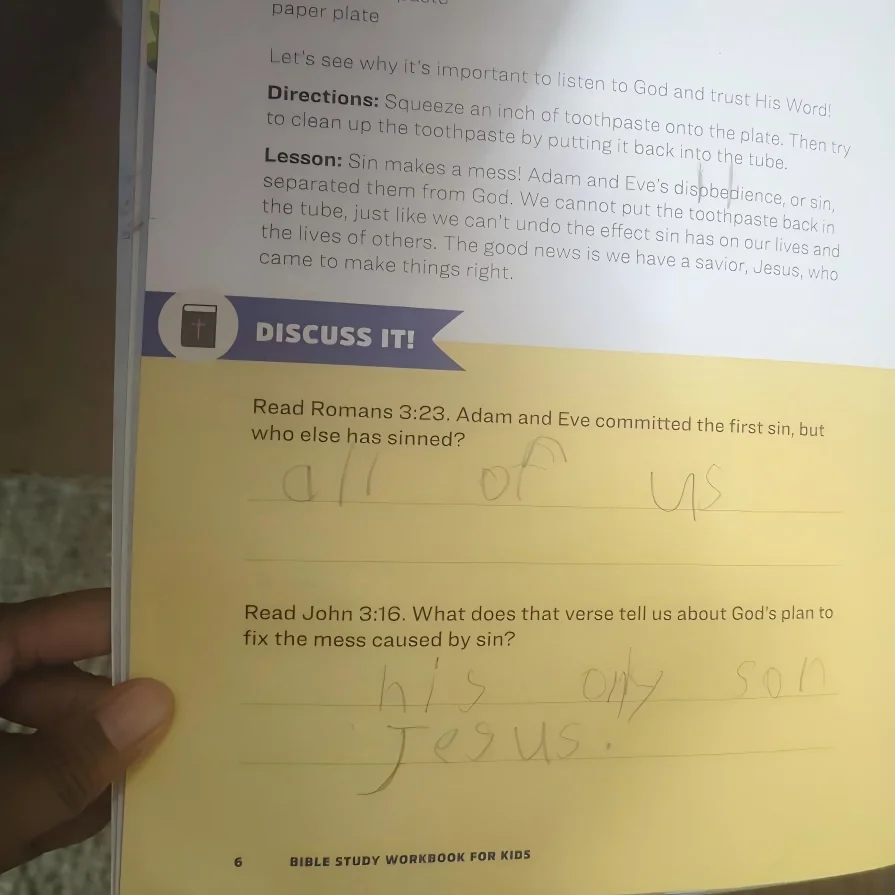 paper plate
Let's see why it's important to listen to God and trust His Word!
Directions: Squeeze an inch of toothpaste onto the plate. Then try
to clean up the toothpaste by putting it back into the tube.
Lesson: Sin makes a mess! Adam and Eve's disobedience, or sin,
separated them from God. We cannot put the toothpaste back in
the tube, just like we can't undo the effect sin has on our lives and
the lives of others. The good news is we have a savior, Jesus, who
came to make things right.
DISCUSS IT!
Read Romans 3:23. Adam and Eve committed the first sin, but
who else has sinned?
all of us
Read John 3:16. What does that verse tell us about God's plan to
fix the mess caused by sin?
his only son
Jesus.
6 BIBLE STUDY WORKBOOK FOR KIDS